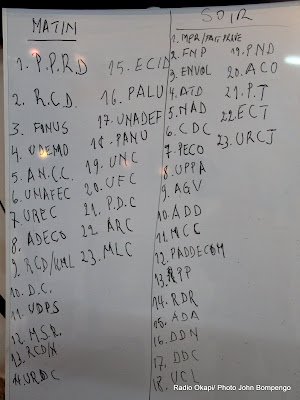 MATIN
1. P.P.R.D
2. R.C.D.
3. FONUS
4. UDEMO
5. AN.C.C.
6. UNAFEC
7. UREC
8. ADECO
9. RCD/KML
10. D.C.
11. UDPS
12. M.S.R.
13. RCD/N
14. URDC
15. ECID
16. PALU
17. UNADEF
18. PANU
19. UNC
20. UFC
21. P.D.C
22. ARC
23. MLC
SOIR
1. MPR/
2. FNP
3. ENVOL
4. ATD
5. NAD
6. CDC
7. PECO
8. UPPA
9. AGV
10. ADD
11. MCC
12. PADDECOM
13. RPP
14. RDR
15. ADA
16. DDN
17. DDC
18. UCL
19. PND
20. ACO
21. P.T
22. ECT
23. URCJ
Radio Okapi/ Photo John Bompengo